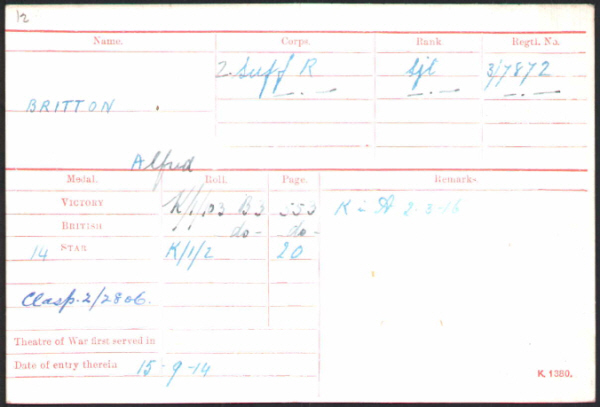 12
Name. Corps. Rank. Regtl. No.
2. Suff R Sjt 3/7872
BRITTON
Alfred
Medal. Roll. Page. Remarks.
VICTORY K/1/103 B3 553 K in A 2-3-16
BRITISH do - do -
14 STAR K/1/2 20
Clasp. 2/2806.
Theatre of War first served in
Date of entry therein 15-9-14
K. 1380.